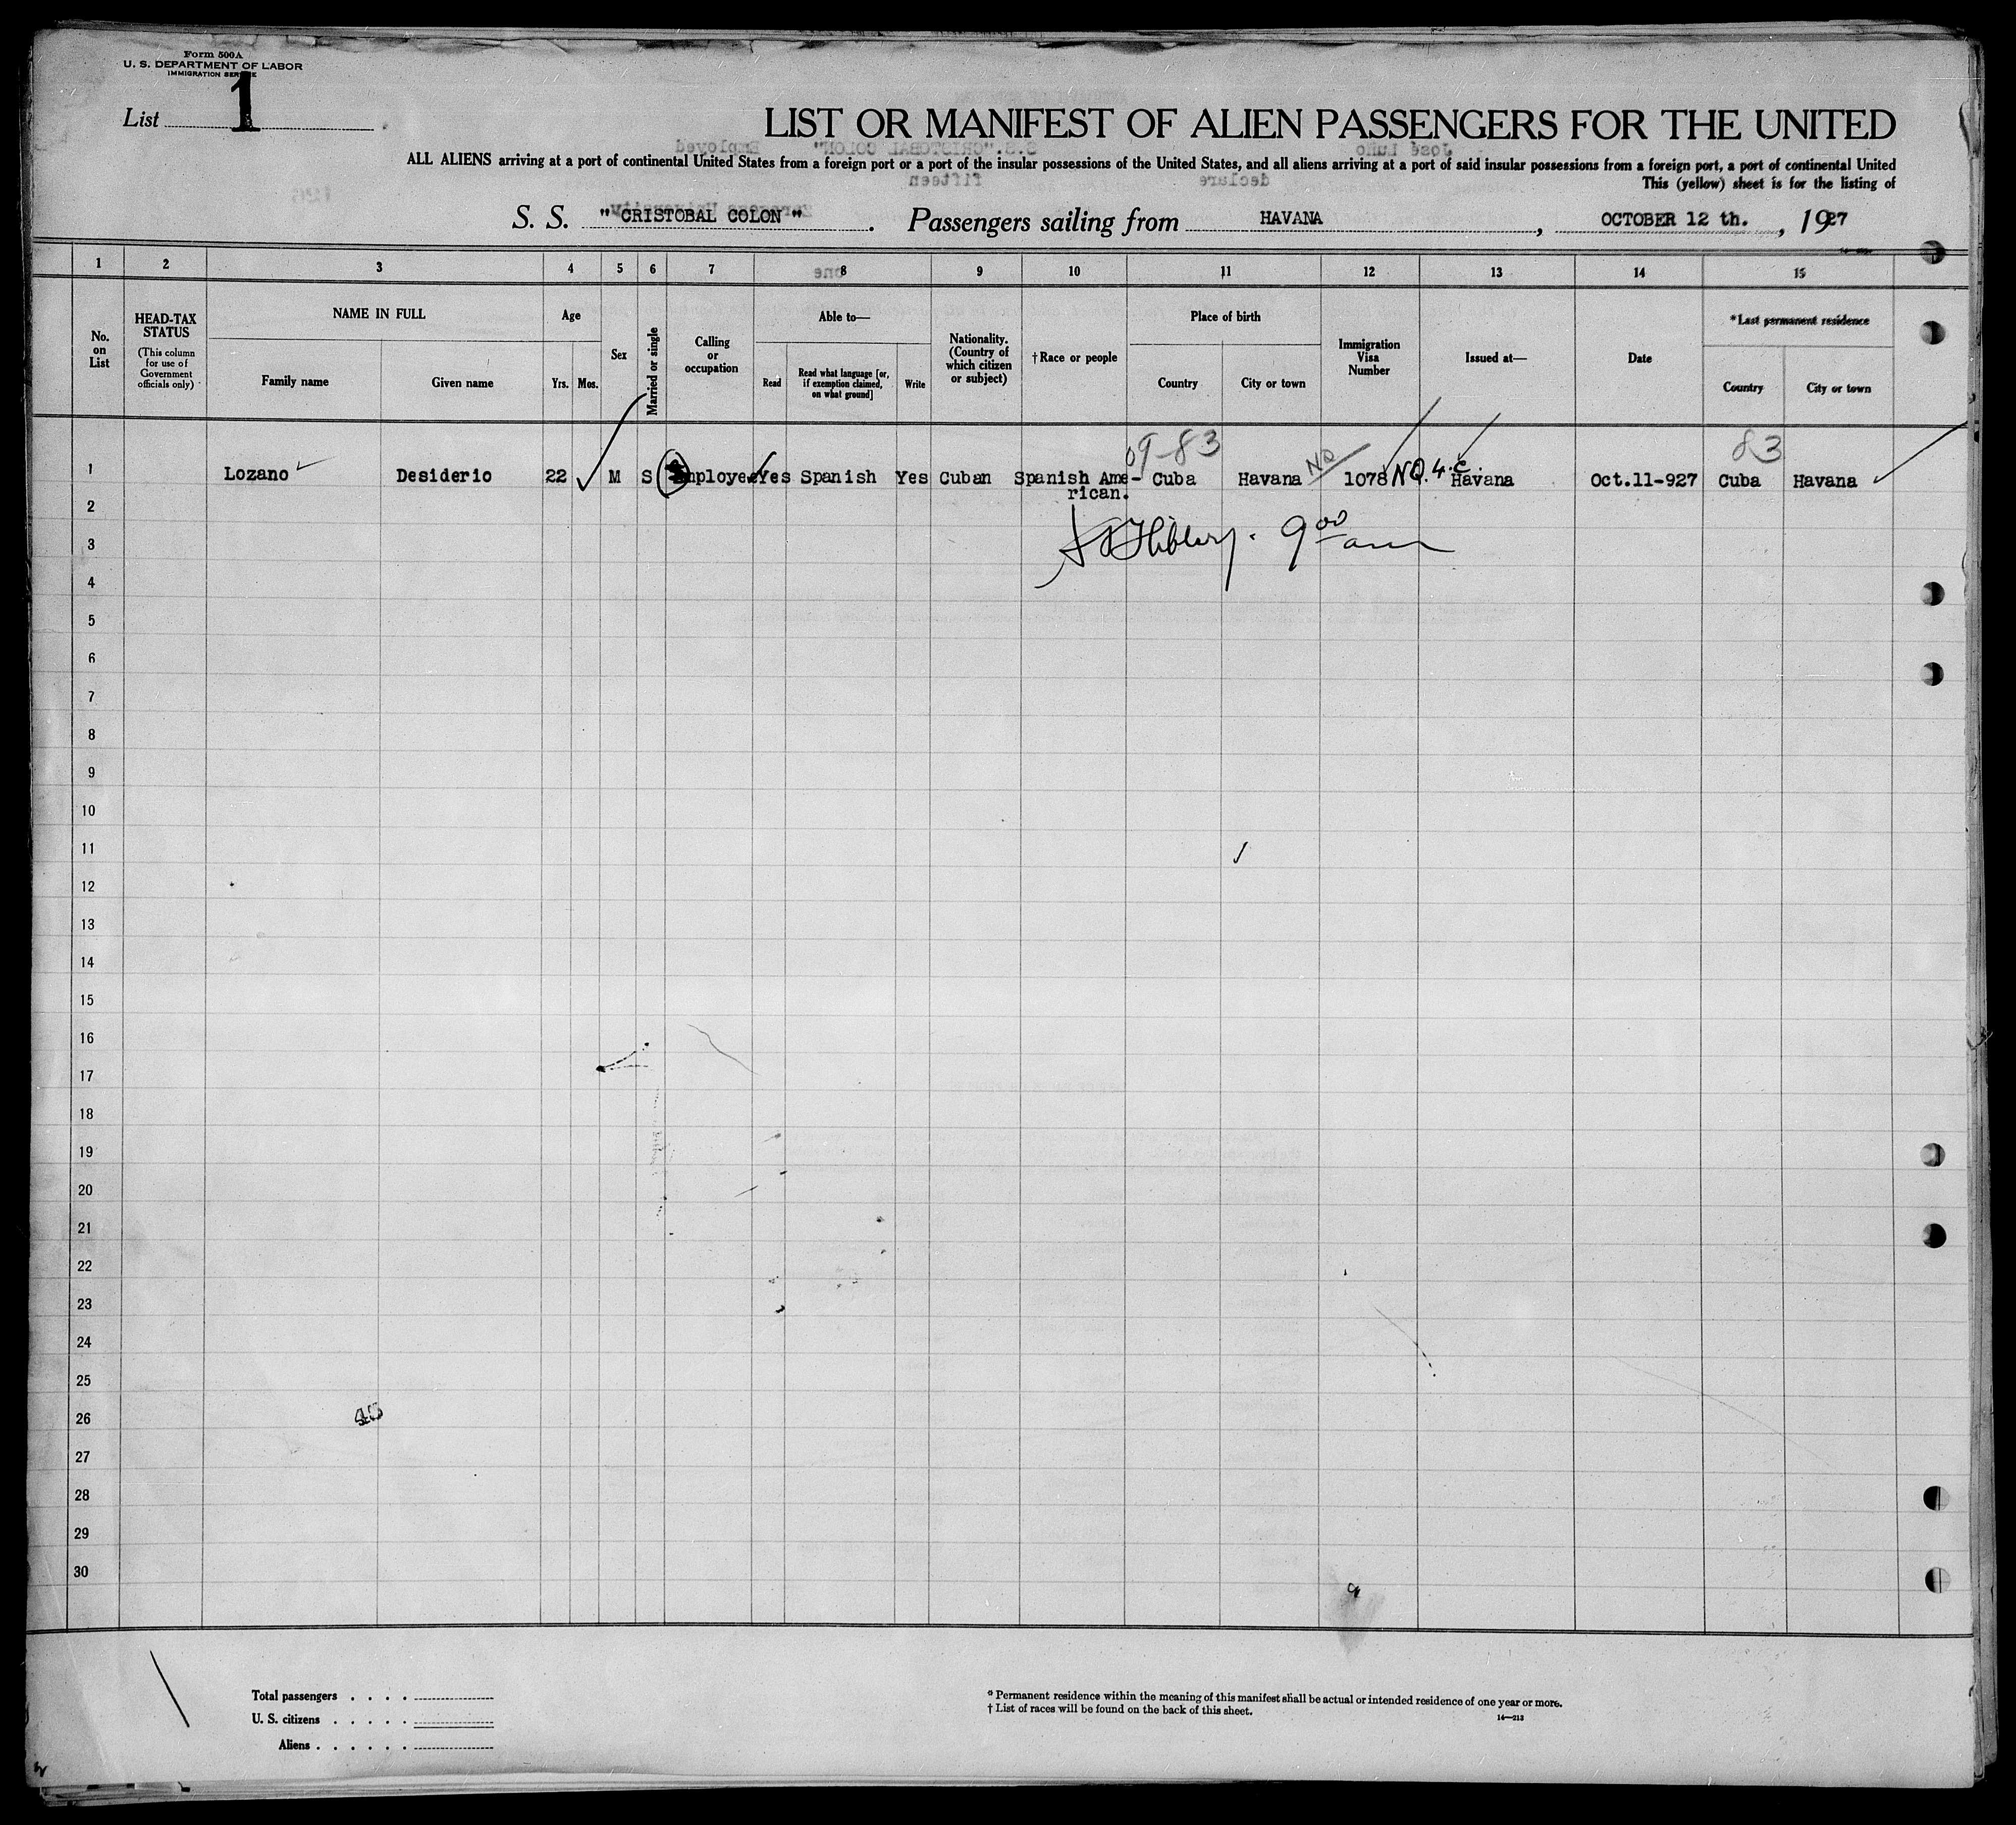 Form 500A
U. S. DEPARTMENT OF LABOR
IMMIGRATION SERVICE
List 1
LIST OR MANIFEST OF ALIEN PASSENGERS FOR THE UNITED
ALL ALIENS arriving at a port of continental United States from a foreign port or a port of the insular possessions of the United States, and all aliens arriving at a port of said insular possessions from a foreign port, a port of continental United
This (yellow) sheet is for the listing of
S. S. "CRISTOBAL COLON". Passengers sailing from HAVANA, OCTOBER 12 th., 1927
1 2 3 4 5 6 7 8 9 10 11 12 13 14 15
No. on List
HEAD-TAX STATUS
(This column for use of Government officials only)
NAME IN FULL
Family name
Given name
Age
Yrs. Mos.
Sex
Married or single
Calling or occupation
Able to—
Read
Read what language [or, if exemption claimed, on what ground]
Write
Nationality. (Country of which citizen or subject)
† Race or people
Place of birth
Country
City or town
Immigration Visa Number
Issued at—
Date
*Last permanent residence
Country
City or town
09-83
83
1 Lozano Desiderio 22 M S Employee Yes Spanish Yes Cuban Spanish Ame- Cuba Havana NQ 1078 NQ. 4.c. Havana Oct.11-927 Cuba Havana
rican.
2
9 00 am
3
4
5
6
7
8
9
10
11
12
13
14
15
16
17
18
19
20
21
22
23
24
25
26
27
28
29
30
Total passengers . . . .
U. S. citizens . . . . .
Aliens . . . . . .
* Permanent residence within the meaning of this manifest shall be actual or intended residence of one year or more.
† List of races will be found on the back of this sheet.
14—213